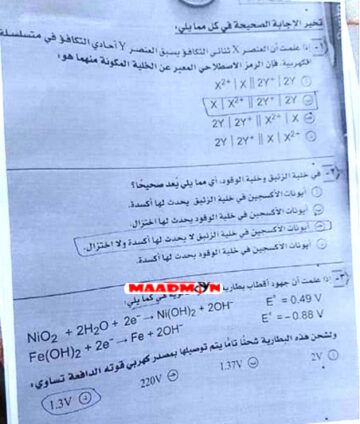 تخير الإجابة الصحيحة في كل مما يلي:
١- إذا علمت أن العنصر X ثنائي التكافؤ يسبق العنصر Y أحادي التكافؤ في متسلسلة
الكهربية، فإن الرمز الاصطلاحي المعبر عن الخلية المكونة منهما هو:
X²⁺ | X || 2Y⁺ | 2Y
X | X²⁺ || 2Y⁺ | 2Y
2Y | 2Y⁺ || X²⁺ | X
2Y | 2Y⁺ || X | X²⁺
٢- في خلية الزئبق وخلية الوقود، أي مما يلي يُعد صحيحًا؟
أيونات الأكسجين في خلية الزئبق يحدث لها أكسدة.
أيونات الأكسجين في خلية الوقود يحدث لها اختزال.
أيونات الأكسجين في خلية الزئبق لا يحدث لها أكسدة ولا اختزال.
أيونات الأكسجين في خلية الوقود يحدث لها أكسدة.
MAADMOYN
٣- إذا علمت أن جهود أقطاب بطارية كما يلي:
NiO₂ + 2H₂O + 2e⁻ → Ni(OH)₂ + 2OH⁻ E° = 0.49 V
Fe(OH)₂ + 2e⁻ → Fe + 2OH⁻ E° = − 0.88 V
ولشحن هذه البطارية شحنًا تامًا يتم توصيلها بمصدر كهربي قوته الدافعة تساوي:
2V 1.37V 220V 1.3V